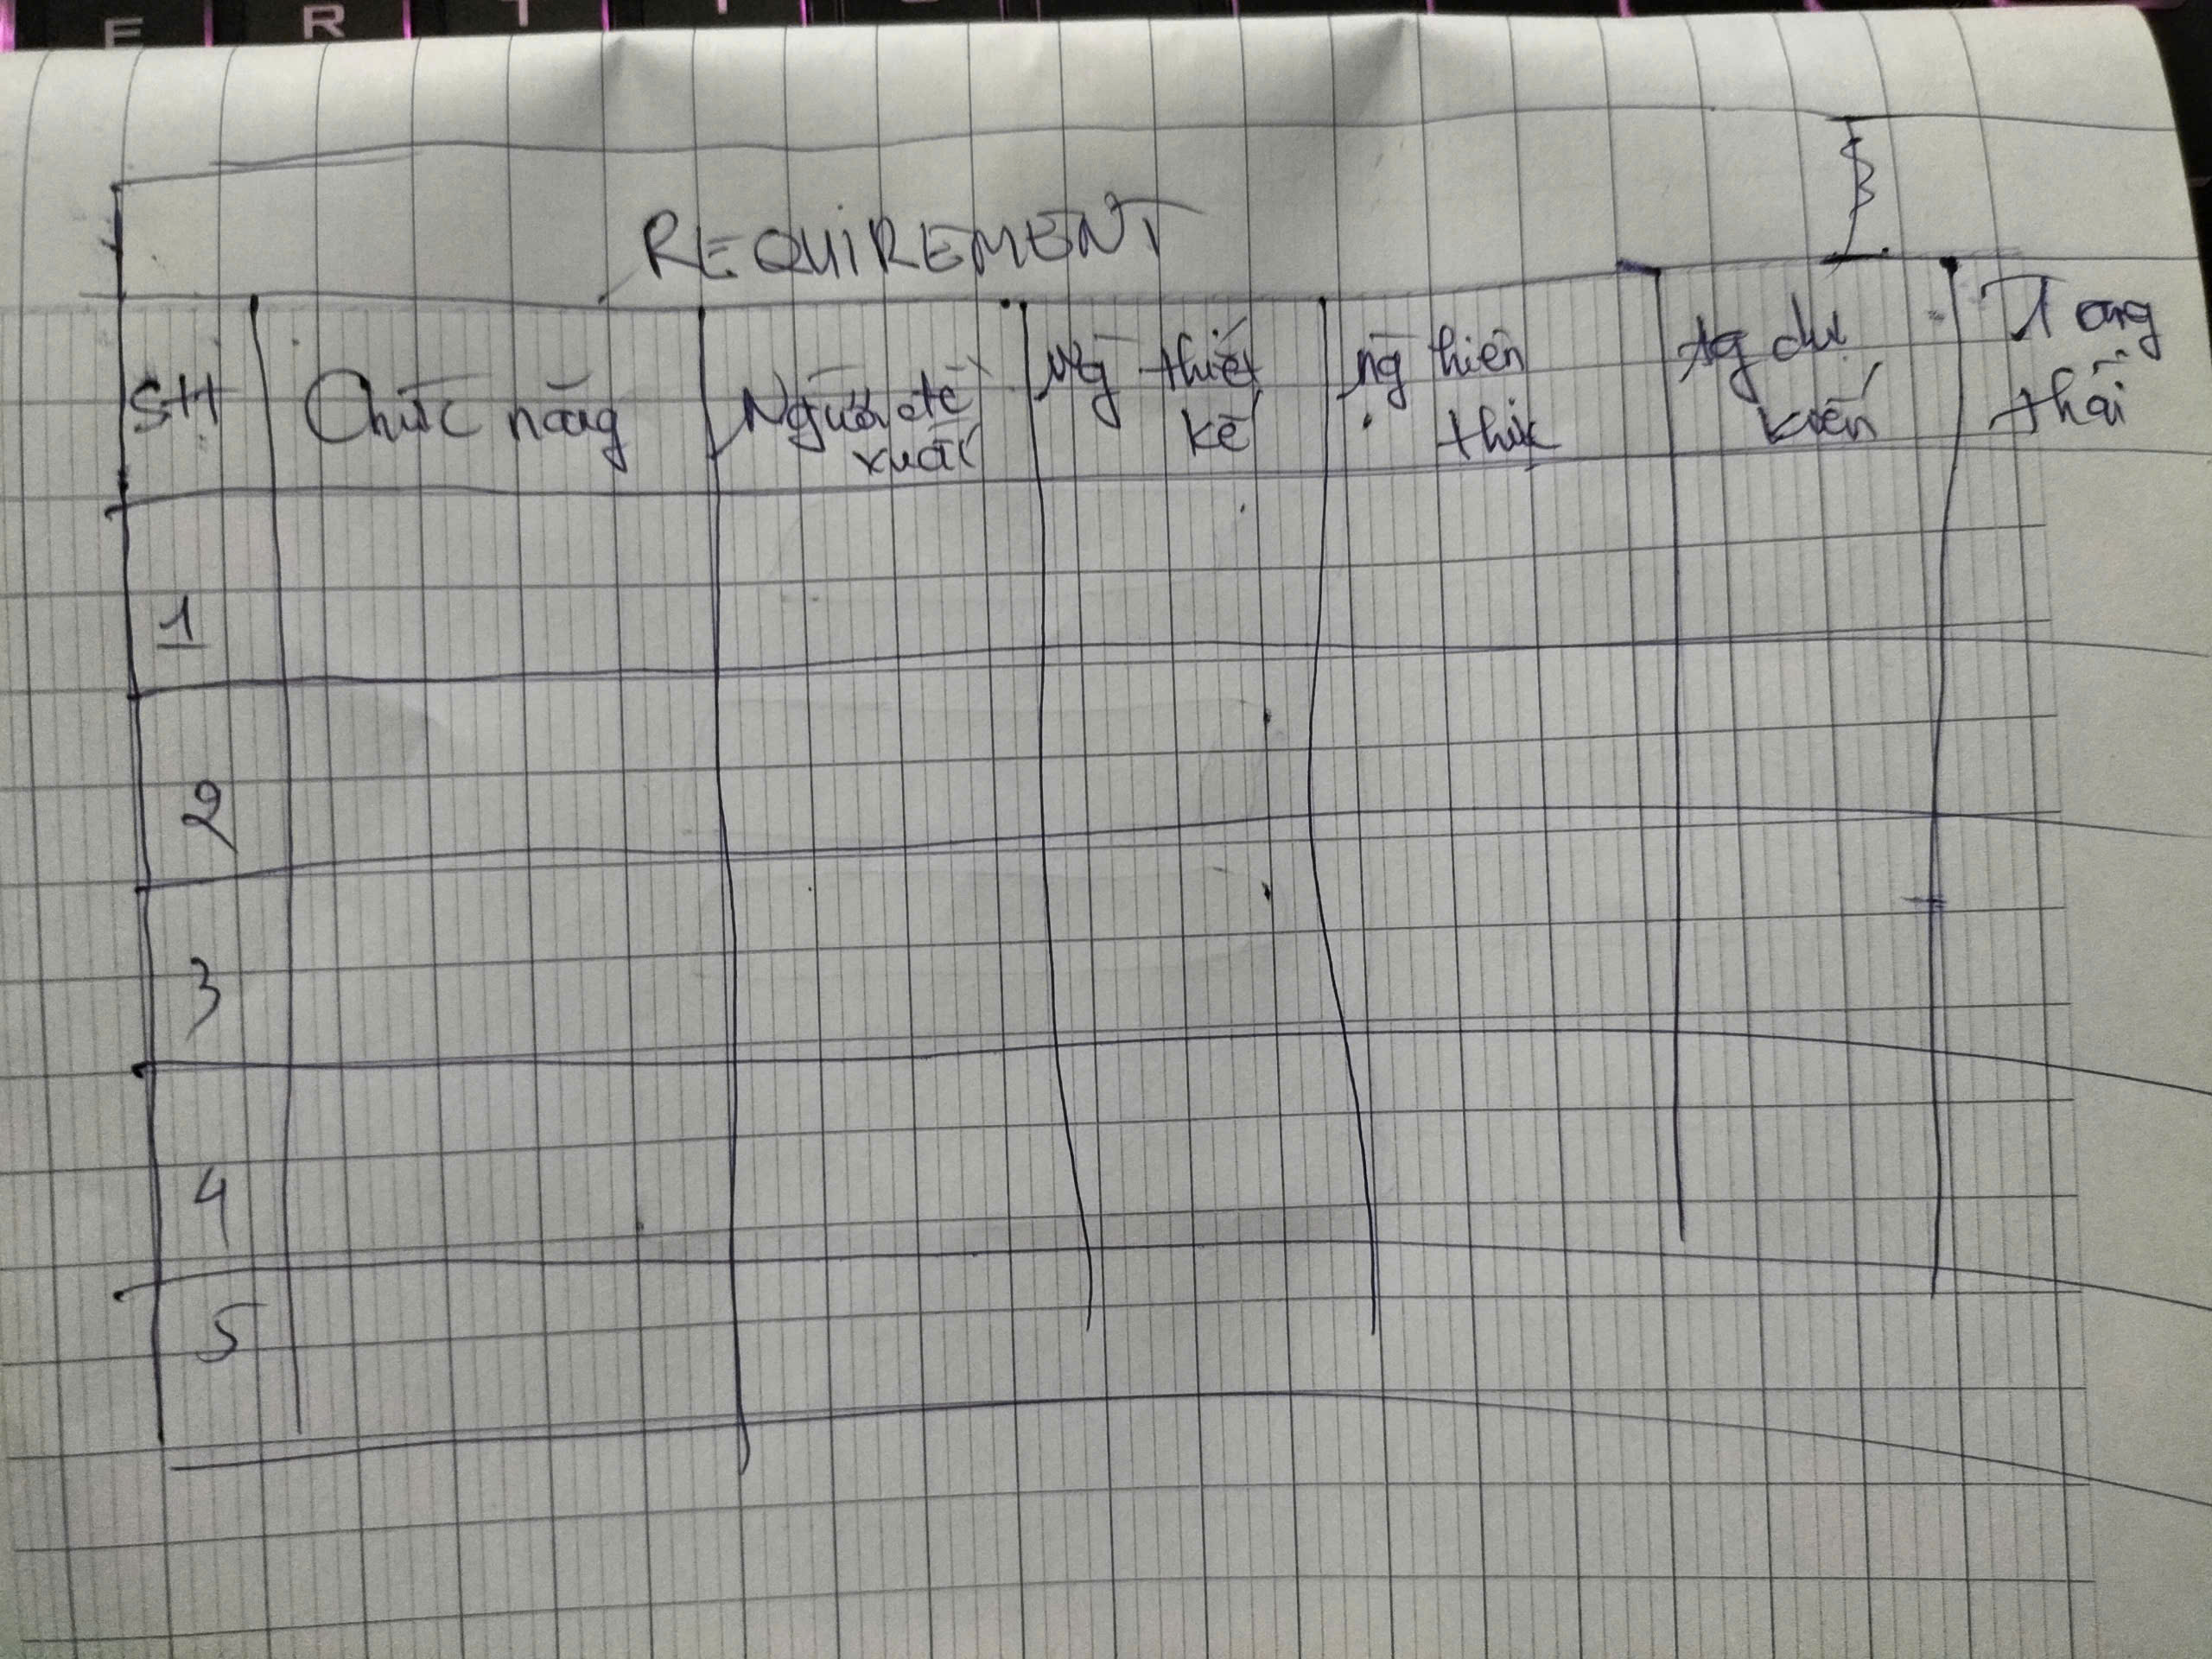 REQUIREMENT
STT
Chức năng
Người đề
xuất
Ng thiết
kế
ng hiện
thực
tg dự
kiến
Trạng
thái
1
2
3
4
5